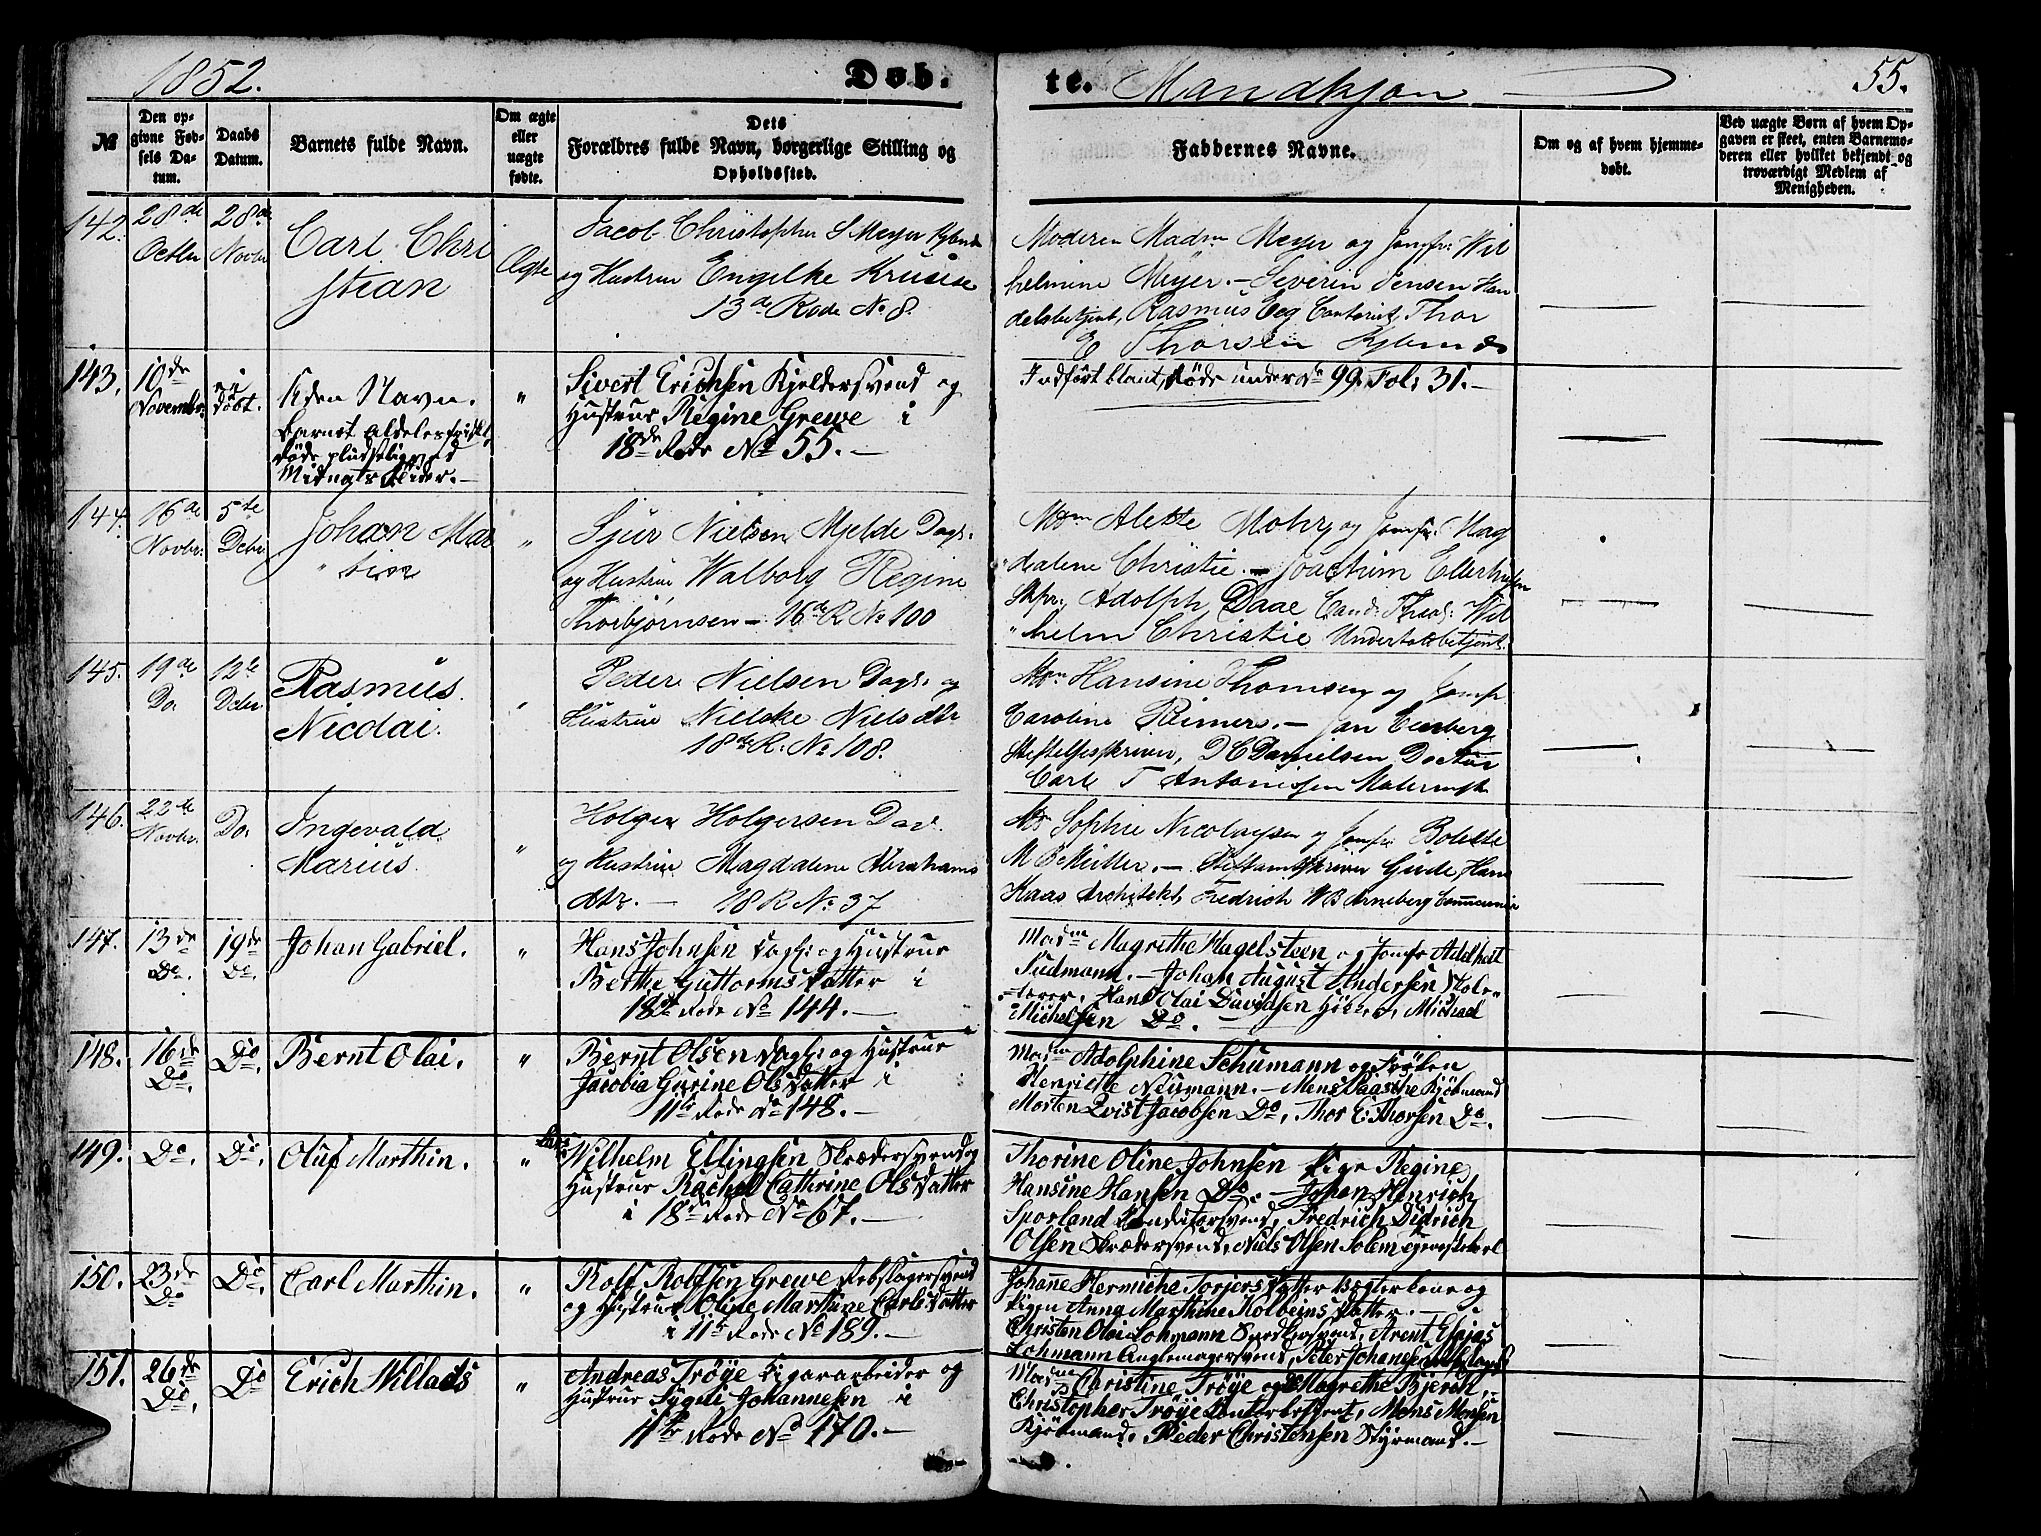 1852.
Døb.
te. Mandkjøn
55.
№
Den op-
givne Fød-
sels Da-
tum.
Daabs
Datum.
Barnets fulde Navn.
Om ægte
eller
uægte
fødte.
Dets
Forældres fulde Navn, borgerlige Stilling og
Opholdssted.
Faddernes Navne.
Om og af hvem hjemme-
døbt.
Ved uægte Børn af hvem Op-
gaven er skeet, enten Barnemo-
deren eller hvilket bekjendt og
troværdigt Medlem af
Menigheden.
142.
28de
Octbr
28de
Novbr
Carl Chri
stian
Ægte
Jacob Christopher S Meyer Kjbmd
og Hustrue Engelke Krusse
13de Rode No 8.
Moderen Madm Meyer og Jomfr: Wil
helmine Meyer.- Severin Jensen Han
delsbetjent, Rasmus Eeg Contorist, Thor
E Thorsen Kjbmd
143.
10de
Novembr.
ei
døbt.
Uden Navn.
Barnet aldeles friskt,
døde pludselig ved
Midnats Tider.-
"
Sivert Erichsen Kjeldersvend og
Hustrue Regine Grewe i
18de Rode No 55.-
Indført blant Døde under No 99. Fol: 31.-
144.
16de
Novbr.
5te
Debr
Johan Mar
" tin
"
Sjur Nielsen Mjelde Dagl.
og Hustrue Walborg Regine
Thorbjørnsen - 16de R No 100
Mdm Alette Mohr og Jomfr: Mag
dalene Christie - Joachim Ellerhusen
Skpr:, Adolph Daae Cand: Theol: Wil
" helm Christie Undertoldbetjent.
145.
19de
Do
12te
Debr
Rasmus
Nicolai.
"
Peder Nielsen Dagl. og
Hustrue Nielske Nielsdtr
18de R. No 108.
Mdm Hansine Thomsen og Jomfr
Caroline Reimers.- Jan
D C Danielsen Doctor
Carl T Antonissen
146.
22de
Novbr.
Do.
Ingevald
Marius.
"
Holger Holgersen Dav.
og Hustrue Magdalene Abrahams
dtr.- 18 R No 37
Md Sophie Nicolaysen og Jomfr Bolette
M Müller.- Stiftamtskriver Gude, Hans
Kaas Architekt, Fredrich W B Arneberg
147.
13de
Do.
19de
Do.
Johan Gabriel.
"
Hans Johnsen Dagl: og Hustrue
Berthe Guttorms Datter i
18de Rode No 144.-
Madm Magrethe Hagelsteen og Jomfr Adelheit
Sudmann.- Johan August Andersen Skole-
-lærer, Hans Olai Davidsen Michael
Michelsen Do.-
148.
16de
Do.
Do.
Bernt Olai.
"
Bernt Olsen Dagl: og Hustrue
Jacobia Gurine Ols Datter i
11te Rode No 148.-
Madm Adolphine Schumann og Frøken
Henriette Neumann.- Mens Paasche Kjøbmand
Morten Qvist Jacobsen Do, Thor E: Thorsen Do.
149.
Do.
Do.
Oluf Marthin.
"
Wilhelm Ellingsen Skrædersvend og
Hustrue Rachel Cathrine Ols Datter
i 18de Rode No 67.-
Thorine Oline Johnsen Pige Regine
Hansine Hansen Do.- Johan Henrich
Sporland Konditorsvend, Fredrich Didrich
Olsen Skrædersvend, Niels Olsen Solem
150.
23de
Do
Do
Carl Marthin.
"
Rolf Rolfsen Grewe Rebslagersvend
og Hustrue Oline Martine Carls Datter
i 11te Rode No 189.-
Johanne Hermiche Torjers Datter og
Pigen Anna Marthine Kolbeins Datter.-
Christen Olai Lohmann Arent Esaias
Lohmann Anglemagersvend, Peter Johansen
151.
26de
Do.
Do
Erich Willads
"
Andreas Trøye Sigararbeider og
Hustrue Sygni Johannesen i
11te Rode No 170.-
Madm Christine Trøye og Do Magrethe Bjerch,-
Christopher Trøye Contorbetjent, Mons Monsen
Kjøbmand, Peder Christensen Styrmand.-